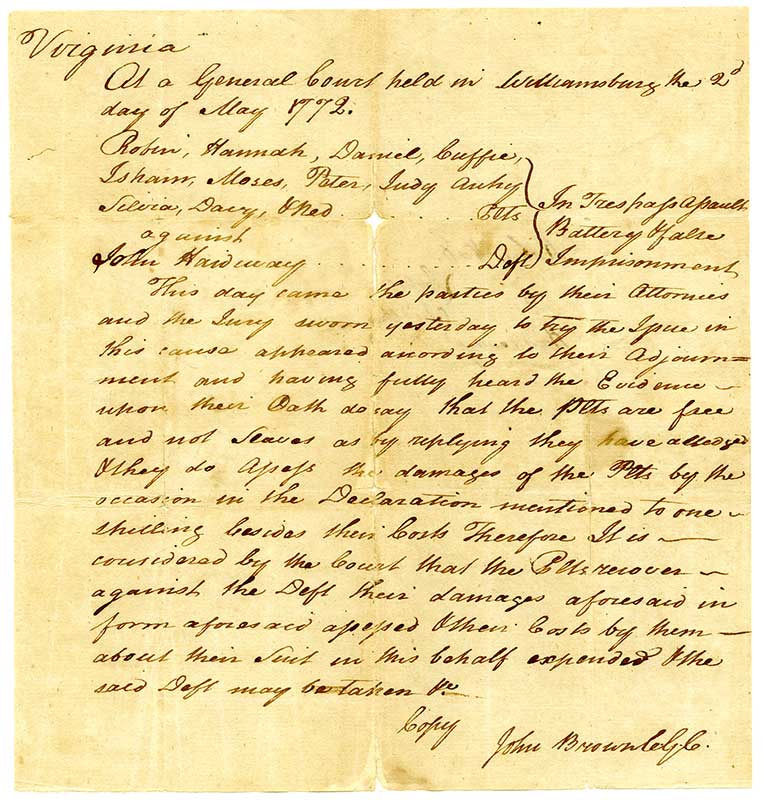 Virginia
At a General Court held in Williamsburg the 2d
day of May 1772.
Robin, Hannah, Daniel, Cuffie,
Isham, Moses, Peter, Judy Autry
Silvia, Davy, & Ned . . . . . . . . Plts
against
John Hardaway . . . . . . . . . . Deft
In Trespass Assault
Battery & false
Imprisonment
This day came the parties by their Attornies
and the Jury sworn yesterday to try the Issue in
this cause appeared according to their Adjourn=
ment and having fully heard the Evidence
upon their Oath do say that the Plts are free
and not Slaves as by replying they have alledged
& they do Assess the damages of the Plts by the
occasion in the Declaration mentioned to one
shilling besides their Costs Therefore It is
considered by the Court that the Plts recover
against the Deft their damages aforesaid in
form aforesaid assessed & their Costs by them
about their Suit in this behalf expended & the
said Deft may be taken &c
Copy
John Brown ClGC.